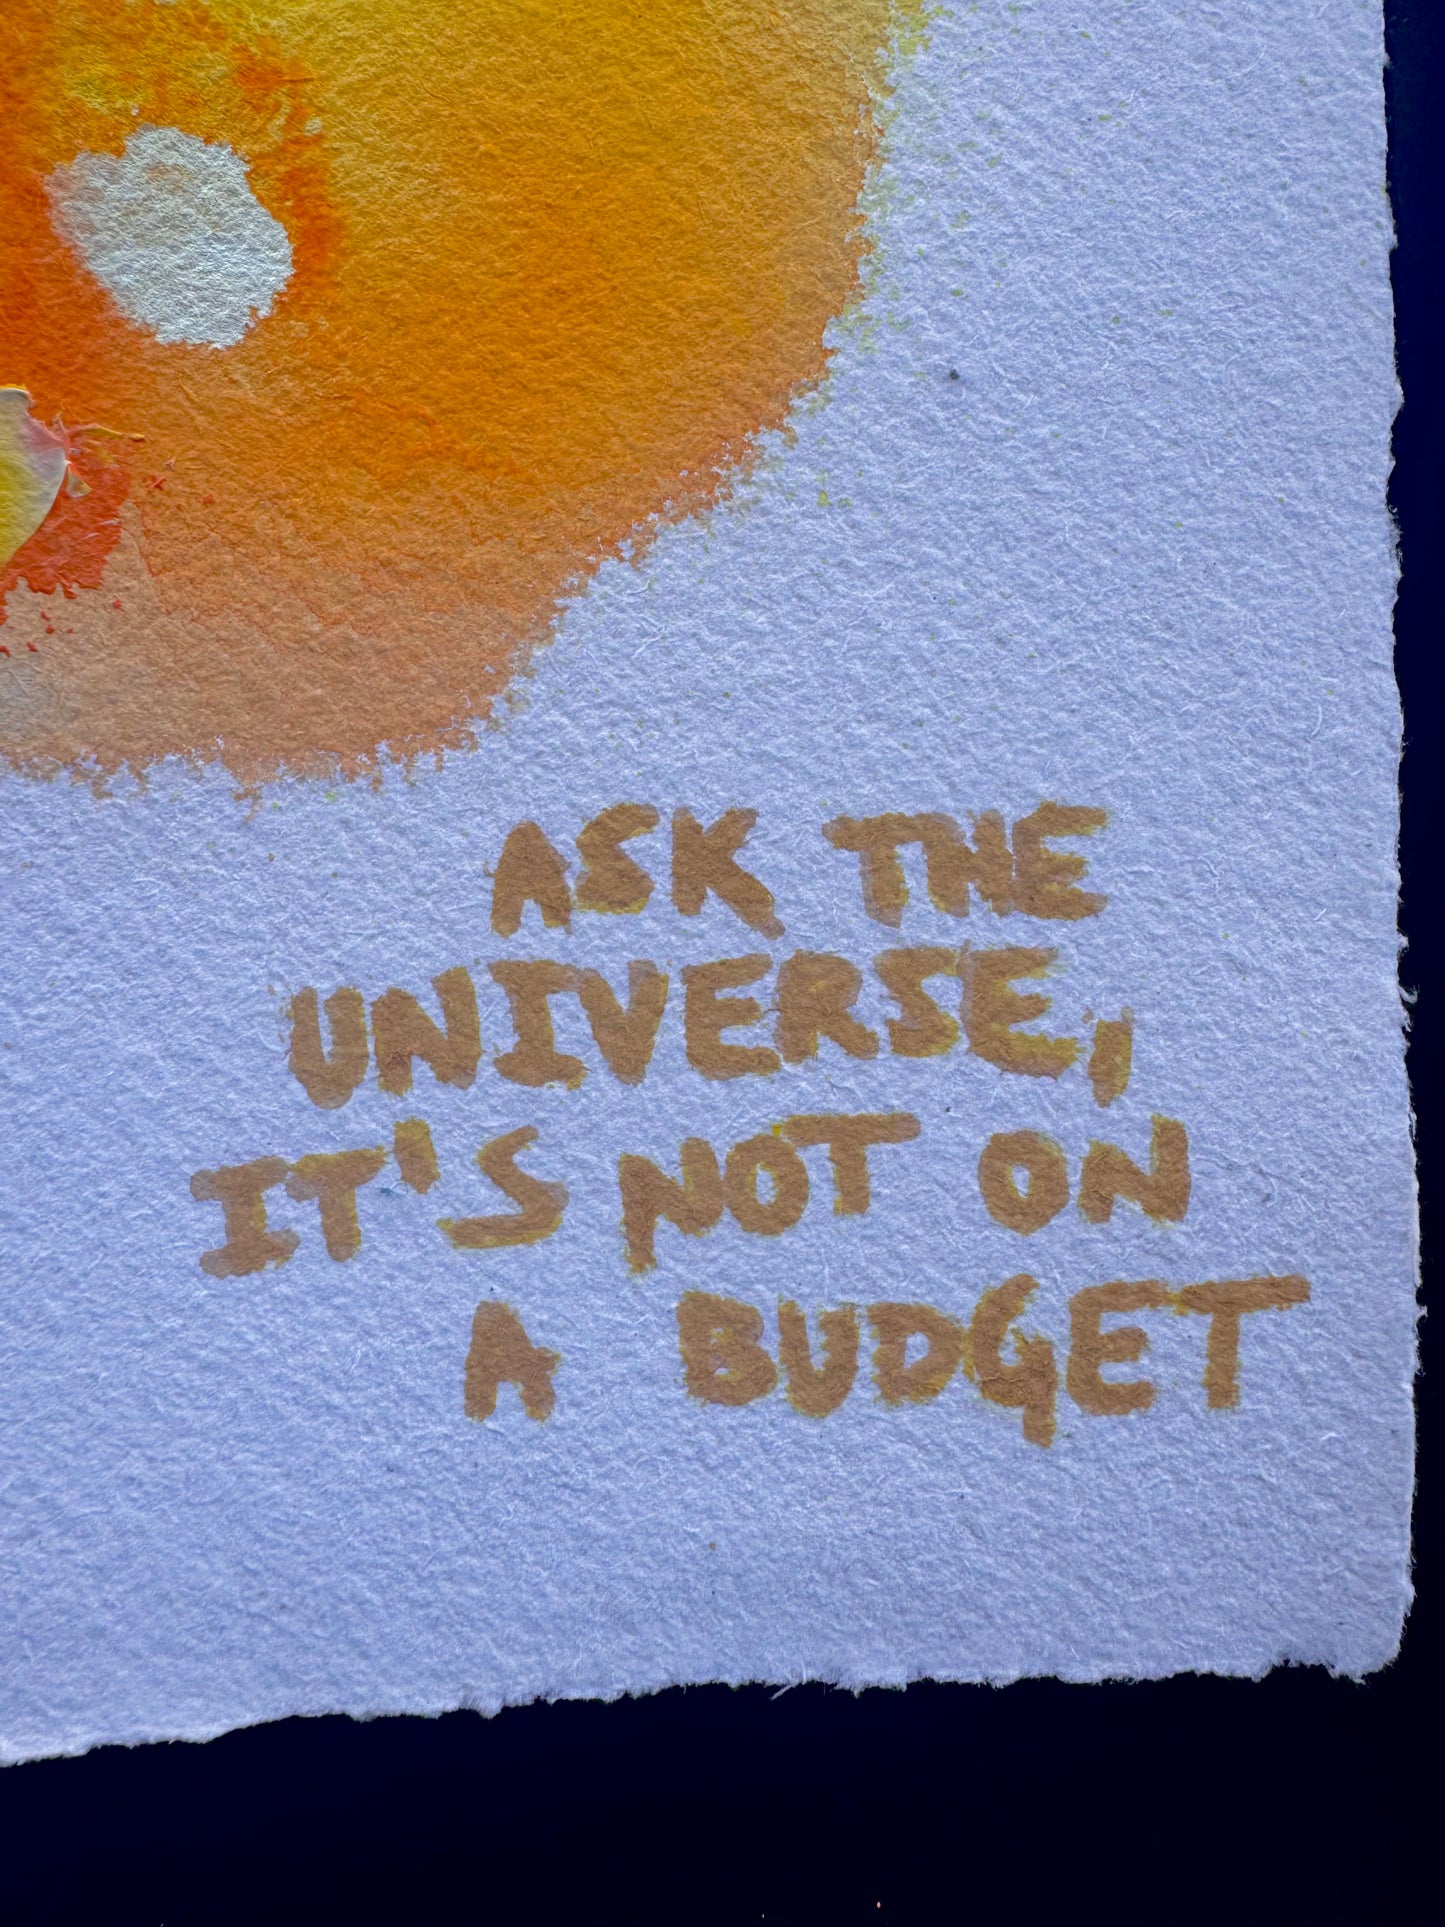 ASK THE
UNIVERSE,
IT'S NOT ON
A BUDGET